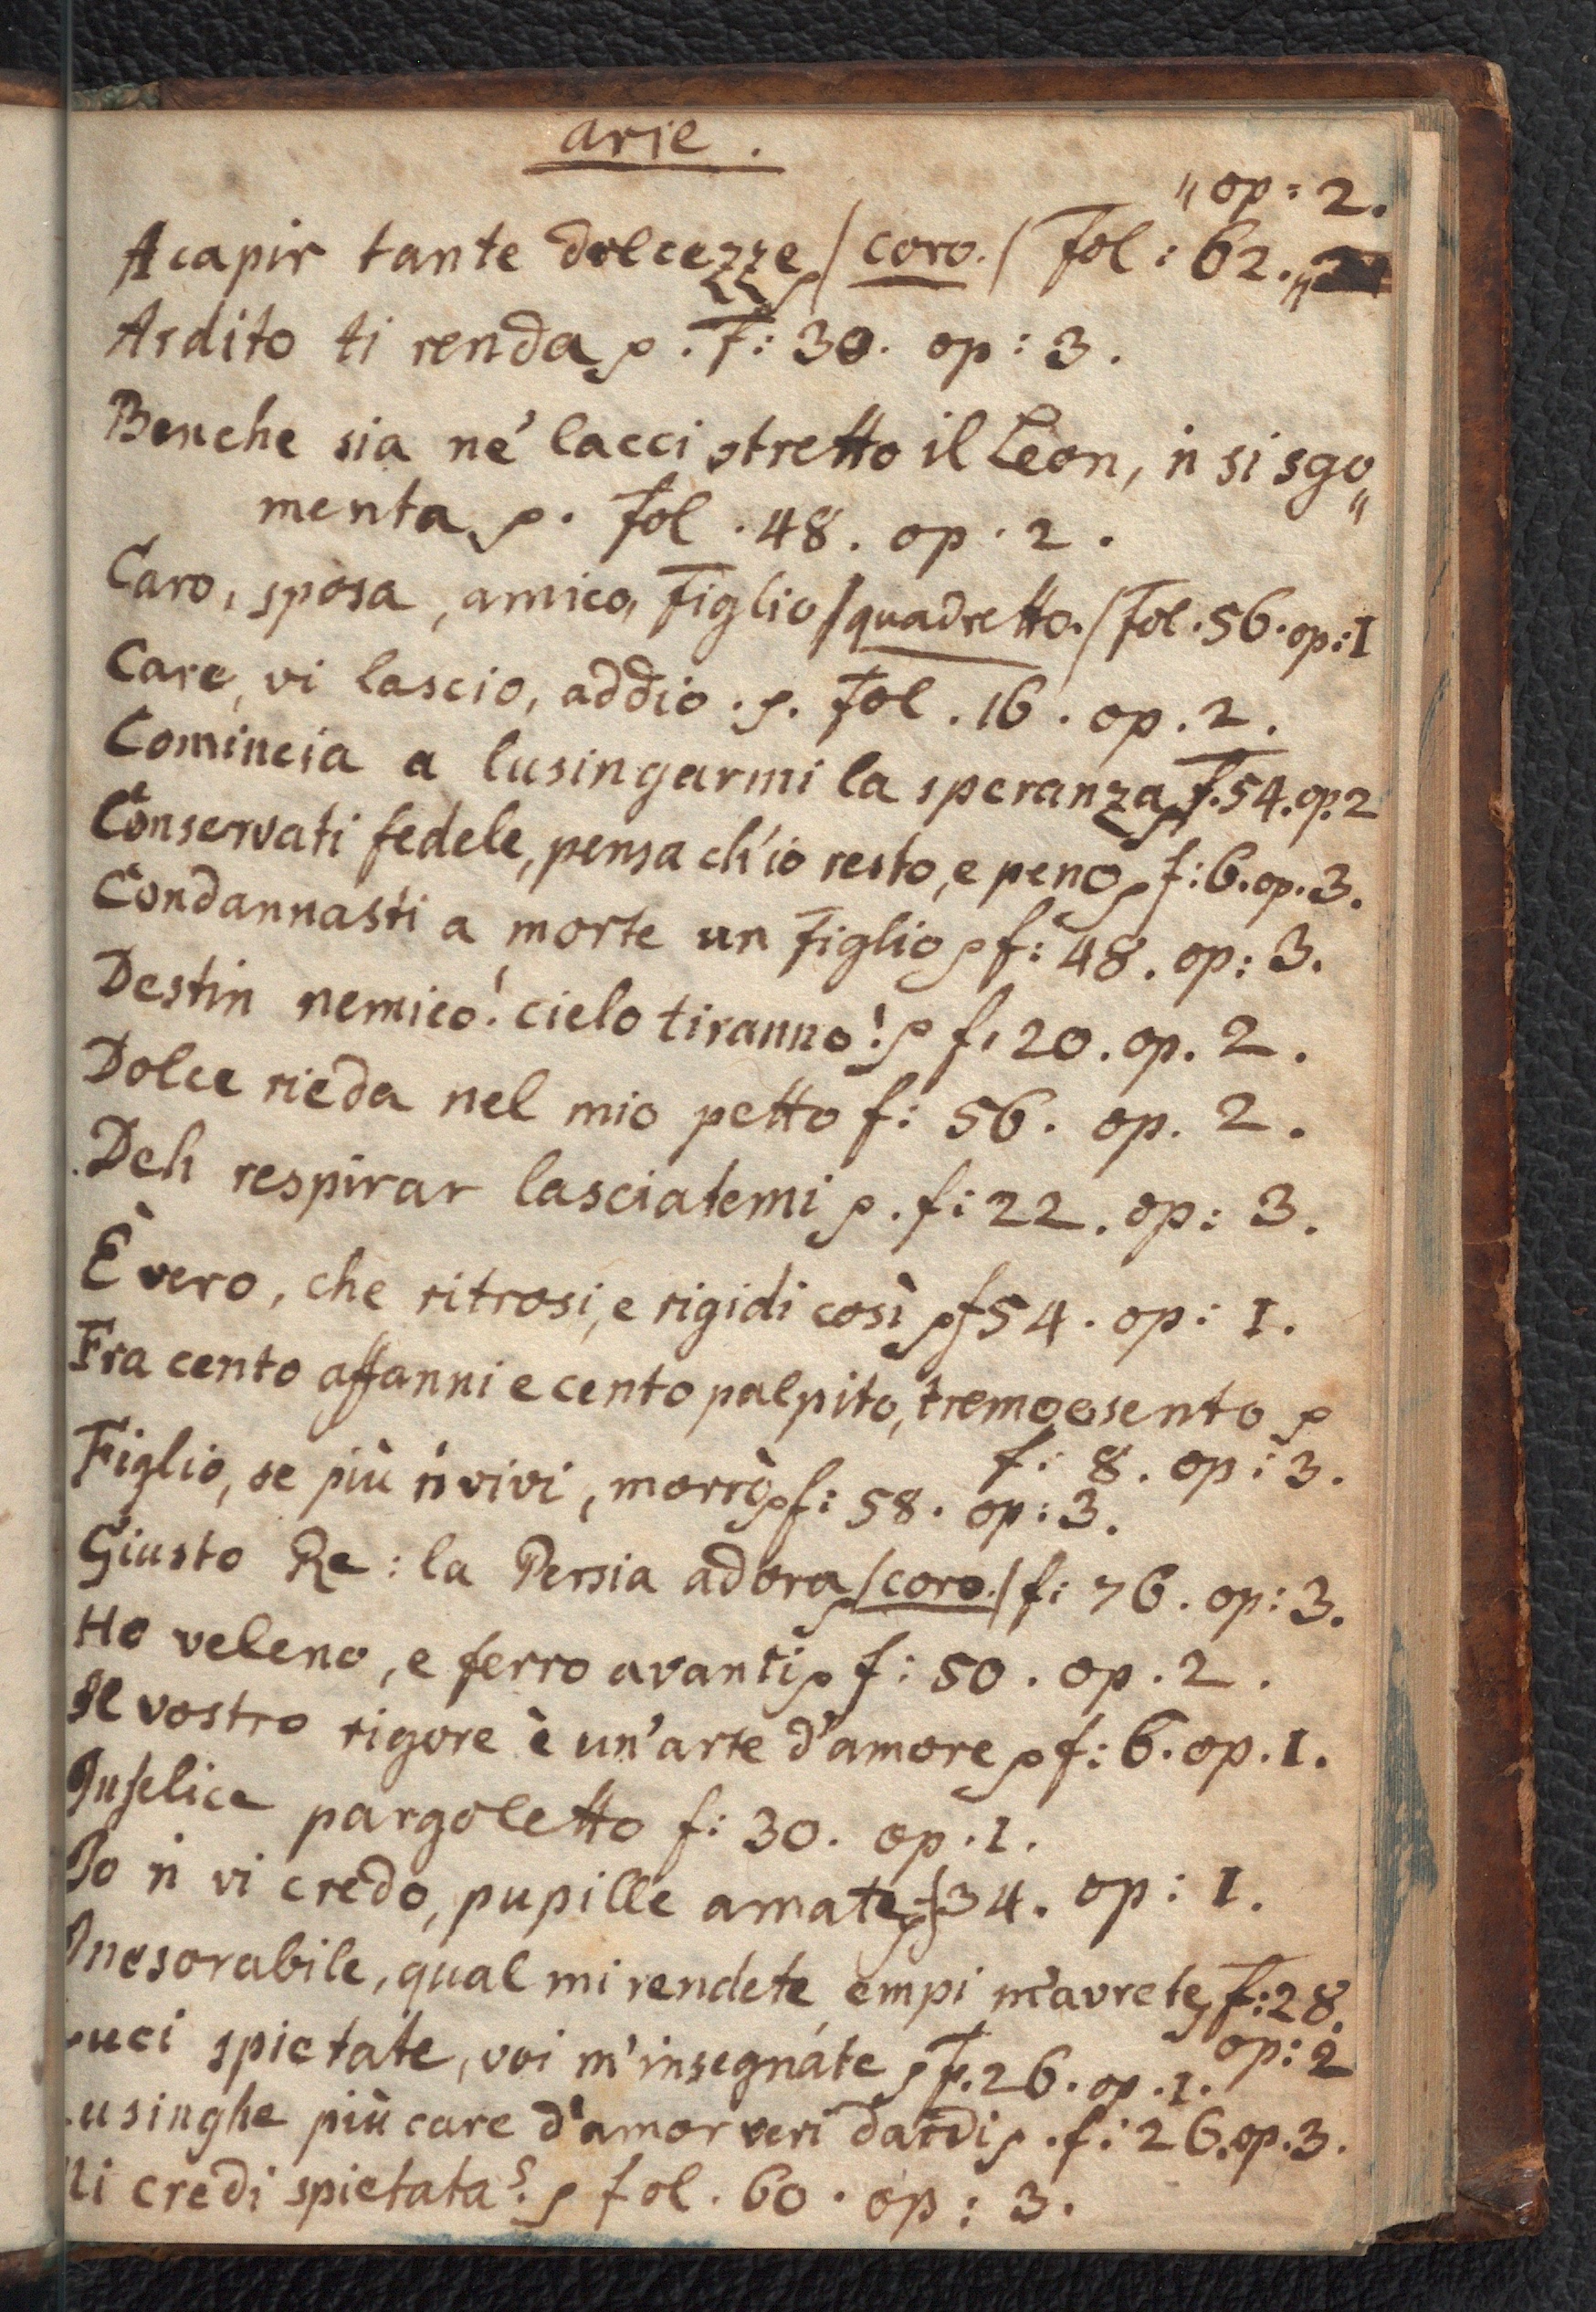 arie.
" op: 2.
A capir tante dolcezze /coro./ fol: 62."
Ardito ti renda. f: 30. op: 3.
Benche sia ne' lacci stretto il Leon, n̄ si sgo"
menta. fol. 48. op. 2.
Caro, sposa, amico, figlio /quadretto./ fol. 56. op: 1
Care, vi lascio, addio. fol. 16. op. 2.
Comincia a lusingarmi la speranza f. 54. op. 2
Conservati fedele, pensa ch'io resto, e peno f: 6. op. 3.
Condannasti a morte un figlio f: 48. op: 3.
Destin nemico! cielo tiranno! f. 20. op. 2.
Dolce rieda nel mio petto f: 56. op. 2.
Deh respirar lasciatemi. f: 22. op: 3.
È vero, che ritrosi, e rigidi così f 54. op: 1.
Fra cento affanni e cento palpito, tremo e sento
f: 8. op: 3.
Figlio, se più n̄ vivi, morrò f: 58. op: 3.
Giusto Re: la Persia adora /coro./ f: 76. op: 3.
Ho veleno, e ferro avanti f: 50. op. 2.
Il vostro rigore è un'arte d'amore f: 6. op. 1.
Infelice pargoletto f: 30. op. 1.
Io n̄ vi credo, pupille amate f 34. op: 1.
Inesorabile, qual mi rendete, empi m'avrete f: 28.
op: 2
Luci spietate, voi m'insegnate f. 26. op. 1.
Lusinghe più care d'amor veri dardi. f: 26. op. 3.
Mi credi spietata? fol. 60. op: 3.